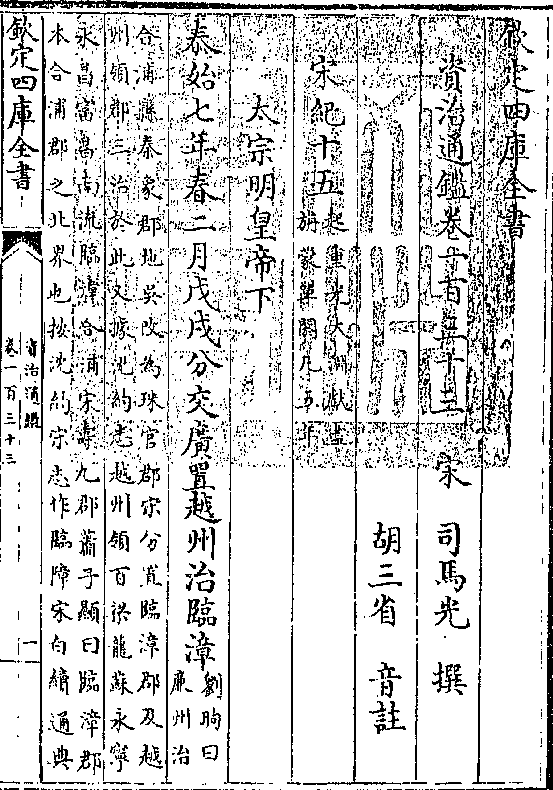 欽定四庫全書
資治通鑑卷一百三十三
宋 司馬光 撰
胡三省 音註
宋紀十五起重光大淵獻盡旃蒙單閼凡五年
太宗明皇帝下
泰始七年春二月戊戌分交廣置越州治臨漳劉昫曰廉州治
合浦縣秦象郡地吳改為珠官郡宋分置臨漳郡及越
州領郡三治於此又據沈約志越州領百梁龍蘇永寧
永昌富昌南流臨漳合浦宋壽九郡蕭子顯曰臨漳郡
本合浦郡之北界也按沈約宋志作臨障宋白續通典
欽定四庫全書
資治通鑑
卷一百三十三
一